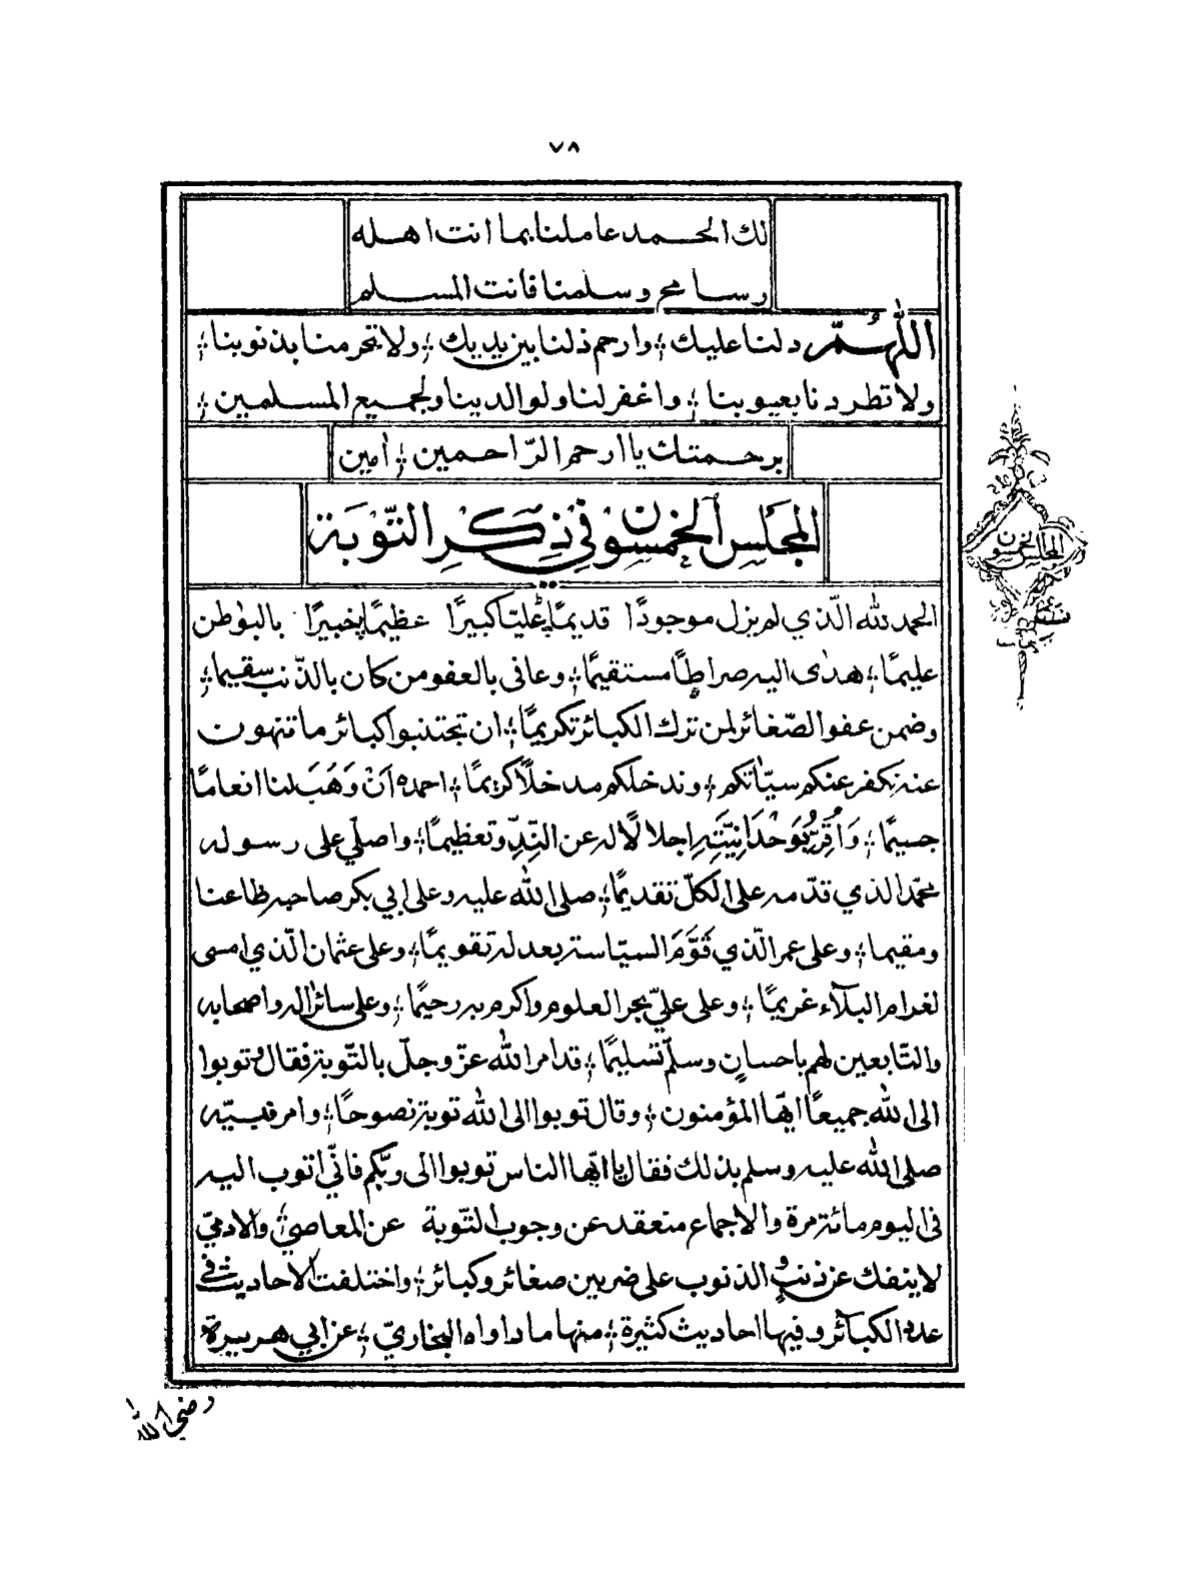 ٧٨
لك الحمد عاملنا بما انت اهله
وسامح وسلمنا فانت المسلم
اللّٰهُمّ دلنا عليك؛ وارحم ذلنا بين يديك؛ ولا تحرمنا بذنوبنا؛
ولا تطردنا بعيوبنا؛ واغفر لنا ولوالدينا ولجميع المسلمين؛
برحمتك يا ارحم الرّاحمين؛ اٰمين
المَجَلِس الخَمسون في ذِكرِ التَّوْبَة
الحمد لله الّذي لم يزل موجودًا قديمًا؛ عليّا كبيرًا عظيمًا؛ خبيرًا بالبواطن
عليمًا؛ هدٰى اليه صراطًا مستقيمًا؛ وعافى بالعفو من كان بالذّنب سقيما؛
وضمن عفو الصّغائر لمن ترك الكبائر تكريمًا؛ ان تجتنبوا كبائر ما تنهون
عنه نكفر عنكم سيّاتكم؛ وندخلكم مدخلًا كريمًا؛ احمده اَنْ وَهَبَ لنا انعامًا
جسيمًا؛ وَاُقِرُّ بِوَحْدَانِيَّتِهِ اجلالًا له عن النِّدِّ وتعظيمًا؛ واصلّي على رسوله
محمّد الذي قدّمه على الكلّ تقديمًا؛ صلى الله عليه وعلى ابي بكر صاحبه ظاعنا
ومقيما؛ وعلى عمر الّذي قَوَّمَ السيّاسة بعدله تقويمًا؛ وعلى عثمان الّذي امسى
لغرام البلآء غريمًا؛ وعلى عليّ بحر العلوم واكرم به رحيمًا؛ وعلى سائر اٰله واصحابه
والتّابعين لهم باحسانٍ وسلّم تسليمًا؛ قد امر الله عزّ وجلّ بالتّوبة فقال توبوا
الى الله جميعًا ايّها المؤمنون؛ وقال توبوا الى الله توبة نصوحًا؛ وامر نبيّه
صلى الله عليه وسلم بذلك فقال يا ايّها الناس توبوا الى ربّكم فانّي اتوب اليه
فى اليوم مائة مرة والاجماع منعقد عن وجوب التوبة عن المعاصي؛ والادميّ
لا ينفك عن ذنبٍ والذنوب على ضربين صغائر وكبائر؛ واختلفت الاحاديث في
عدد الكبآئر وفيها احاديث كثيرة؛ منها ما رواه البخاريّ؛ عن ابي هريرة
رضي الله
المجلس الخمسون